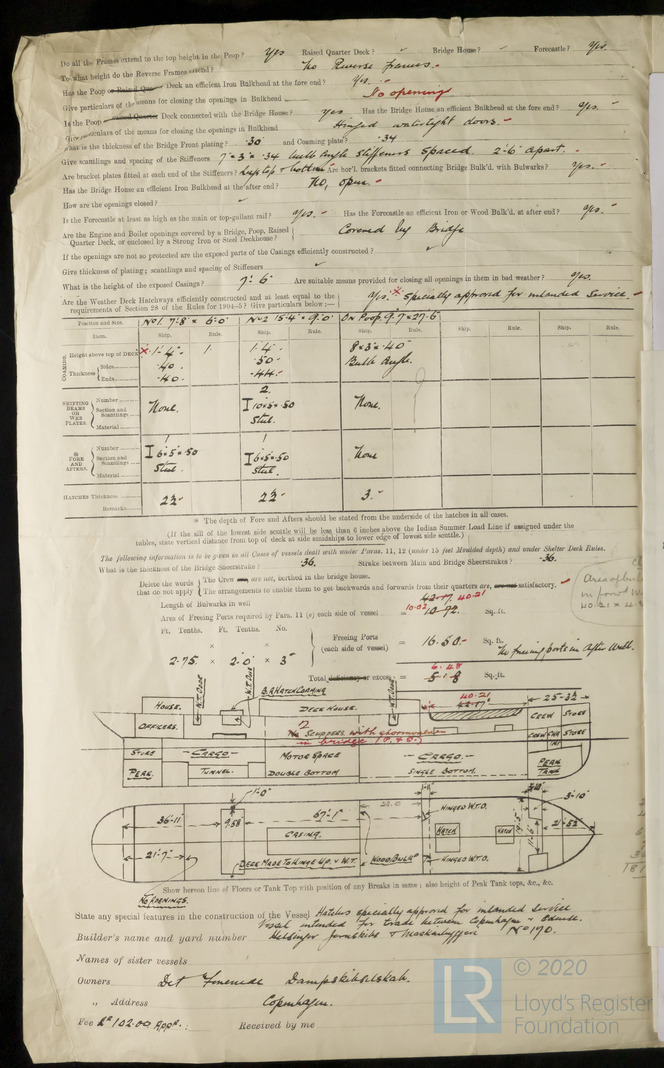 Do all the Frames extend to the top height in the Poop? Yes Raised Quarter Deck? Bridge House? Forecastle? Yes.
To what height do the Reverse Frames extend? No Reverse frames.
Has the Poop or Raised Qua Deck an efficient Iron Bulkhead at the fore end? Yes.
Give particulars of the means for closing the openings in Bulkhead No opening
Is the Poop or raised Quarter Deck connected with the Bridge House? Yes Has the Bridge House an efficient Bulkhead at the fore end? Yes.
Give particulars of the means for closing the openings in Bulkhead Hinged watertight doors.
What is the thickness of the Bridge Front plating? .30 and Coaming plate? .34
Give scantlings and spacing of the Stiffeners 7" × 3" × .34 bulb angle stiffeners spaced 2'-6" apart.
Are bracket plates fitted at each end of the Stiffeners? Lugs top & bottom Are hor'l. brackets fitted connecting Bridge Bulk'd. with Bulwarks? Yes.
Has the Bridge House an efficient Iron Bulkhead at the after end? No, open.
How are the openings closed?
Is the Forecastle at least as high as the main or top-gallant rail? Yes. Has the Forecastle an efficient Iron or Wood Bulk'd, at after end? Yes.
Are the Engine and Boiler openings covered by a Bridge, Poop, Raised
Quarter Deck, or enclosed by a Strong Iron or Steel Deckhouse? Covered by Bridge
If the openings are not so protected are the exposed parts of the Casings efficiently constructed?
Give thickness of plating; scantlings and spacing of Stiffeners
What is the height of the exposed Casings? 7'-6" Are suitable means provided for closing all openings in them in bad weather? Yes.
Are the Weather Deck Hatchways efficiently constructed and at least equal to the
requirements of Section 28 of the Rules for 1904-5? Give particulars below:— Yes. × Specially approved for intended Service
Position and Size. No 1. 7'-8" × 6'-0" No 2 15'-4" × 9'-0" On Poop 9'-7" × 27'-6"
Item. Ship. Rule. Ship. Rule. Ship. Rule. Ship. Rule. Ship. Rule.
COAMING. Height above top of DECK × 1'-4" 1'-4" 8 × 3 × .40
Thickness Sides .40 .50 Bulb Angle.
Ends .40 .44
SHIFTING BEAMS OR WEB PLATES Number 2.
Section and Scantlings None. I 10×5×.50 None.
Material Steel.
* FORE AND AFTERS. Number 1 1
Section and Scantlings I 6×5×.50 I 6×5×.50 None
Material Steel. Steel.
HATCHES Thickness 2½" 2½" 3"
Remarks
* The depth of Fore and Afters should be stated from the underside of the hatches in all cases.
(If the sill of the lowest side scuttle will be less than 6 inches above the Indian Summer Load Line if assigned under the
tables, state vertical distance from top of deck at side amidships to lower edge of lowest side scuttle.)
The following information is to be given in all Cases of vessels dealt with under Paras. 11, 12 (under 15 feet Moulded depth) and under Shelter Deck Rules.
What is the thickness of the Bridge Sheerstrake? .36. Strake between Main and Bridge Sheerstrakes? .36.
Delete the words that do not apply The Crew are, are not, berthed in the bridge house.
The arrangements to enable them to get backwards and forwards from their quarters are, satisfactory.
Length of Bulwarks in well 42.17 40.21
Area of Freeing Ports required by Para. 11 (e) each side of vessel = 10.02 10.92 Sq. ft.
Ft. Tenths. Ft. Tenths. No.
× ×
2.75 × 2.0 × 3 Freeing Ports (each side of vessel) = 16.50 Sq. ft. No freeing ports in After Well.
Total deficiency or excess = 6.48 Sq. ft.
HOUSE. W.T. DOOR W.T. DOOR B.A. HATCH COAMING DECK HOUSE. W.T. DOOR 40.21 25-3½
OFFICERS. 2 Scuppers with stormvalves CREW STORE
in bridge (P. & S.) CREW STORE
STORE CARGO MOTOR SPACE CARGO
PEAK. TUNNEL. DOUBLE BOTTOM SINGLE BOTTOM. PEAK TANK
36-11" 9.58 67-1" HINGED W.T.D. 3-10"
CASING. HATCH HATCH 21-5½
21-7" DECK MADE TO HINGE UP. & W.T. WOOD BULK'D HINGED W.T.D.
No OPENINGS.
Show hereon line of Floors or Tank Top with position of any Breaks in same; also height of Peak Tank tops, &c., &c.
State any special features in the construction of the Vessel Hatches specially approved for intended service
Vessel intended for trade between Copenhagen & Odense.
Builder's name and yard number Helsingør Jernskibs & Maskinbyggeri No 170.
Names of sister vessels
Owners Det Forenede Dampskibsselskab.
" Address Copenhagen.
Fee Kr 102.00 Appd. : Received by me
© 2020
LR
Lloyd's Register
Foundation